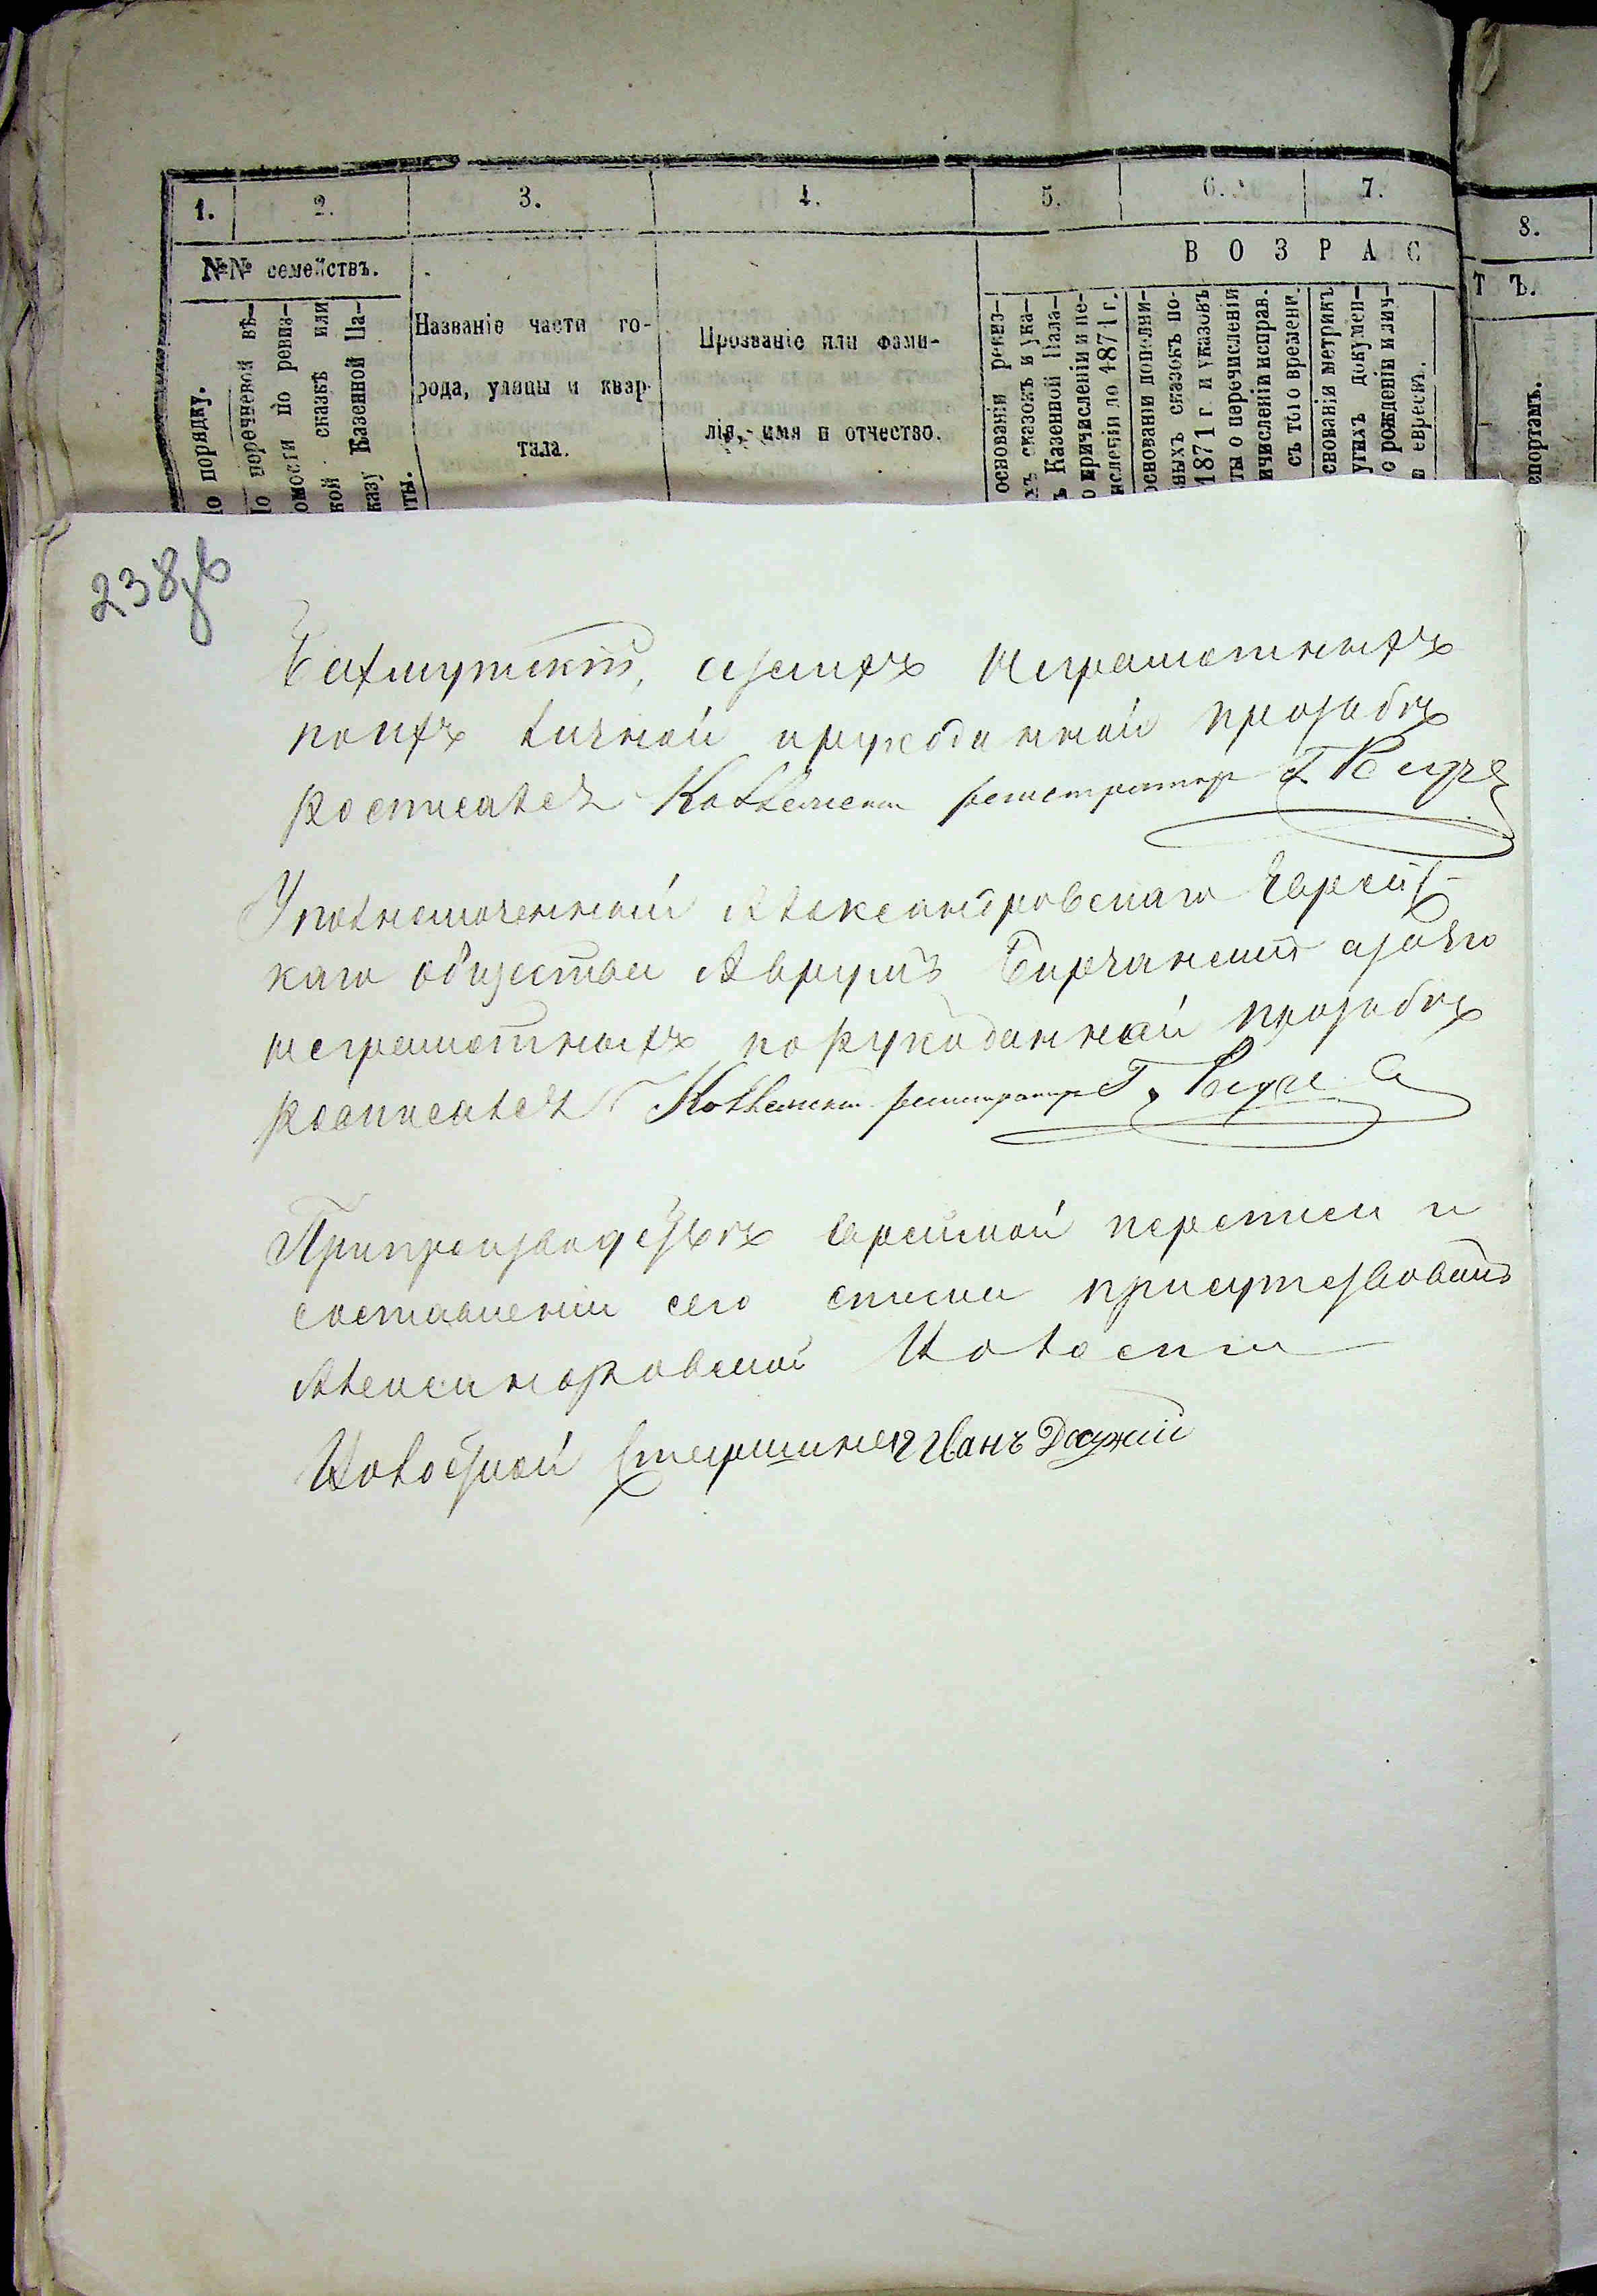 1. 2. 3. 4. 5. 6. 7. 8.
№№ семействъ.
В О З Р А С
Т Ъ.
По порядку.
По перечневой вѣ-
домости по ревиз-
ской сказкѣ или
указу Казенной Па-
латы.
Названіе части го-
рода, улицы и квар-
тала.
Прозваніе или фами-
лія, имя и отчество.
основаніи ревиз-
хъ сказокъ и ука-
ъ Казенной Пала-
о причисленіи и пе-
исленіи до 1871 г.
основаніи дополни-
ныхъ сказокъ по-
1871 г. и указовъ
ты о перечисленіи
ичисленіи исправ.
съ того времени.
снованіи метрикъ
угихъ докумен-
о рожденіи и лич-
о евреевъ.
спортамъ.
238
Бахмутскій, неграмотныхъ
поихъ личной прозьбѣ
росписался Коллежскій регистраторъ
Уполномоченный Александровскаго Еврейс-
каго общества Аврумъ азанего
неграмотныхъ по рукоданной прозьбѣ
росписался Коллежскій регистраторъ Г.
При производствѣ еврейской переписи и
составленіи сего списка
Александровской Волости
Волосной Старшина Иванъ